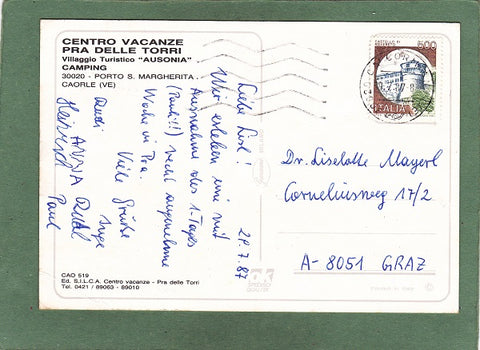 CENTRO VACANZE
PRA DELLE TORRI
Villaggio Turistico "AUSONIA"
CAMPING
30020 - PORTO S. MARGHERITA
CAORLE (VE)
24.7.87
Liebe Lisl!
Wir erleben eine mit
Ausnahme des 1. Tages
(Pauli!!) recht angenehme
Woche in Pra.
Viele Grüße
Rudi
Inge
ANNA
Heinrich
Paul
CASTELLO DI
ROVERETO
500
ITALIA
Dr. Liselotte Mayerl
Corneliusweg 17/2
A-8051 GRAZ
CAO 519
Ed. S.I.L.C.A. Centro vacanze - Pra delle Torri
Tel. 0421 / 89063 - 89010